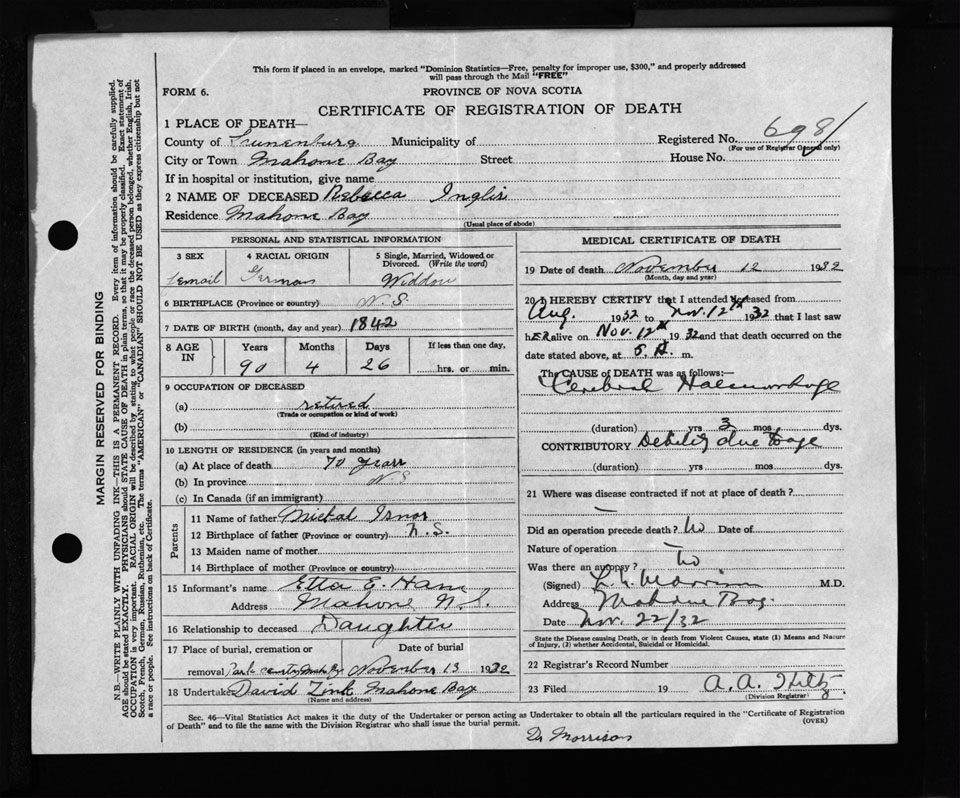 This form if placed in an envelope, marked "Dominion Statistics—Free, penalty for improper use, $300," and properly addressed
will pass through the Mail "FREE"
FORM 6.
PROVINCE OF NOVA SCOTIA
CERTIFICATE OF REGISTRATION OF DEATH
1 PLACE OF DEATH—
Registered No. 698
(For use of Registrar General only)
County of Lunenburg Municipality of
City or Town Mahone Bay Street House No.
If in hospital or institution, give name
2 NAME OF DECEASED Rebecca Inglis
Residence Mahone Bay
(Usual place of abode)
PERSONAL AND STATISTICAL INFORMATION
3 SEX
4 RACIAL ORIGIN
5 Single, Married, Widowed or
Divorced. (Write the word)
Femail German Widdow
6 BIRTHPLACE (Province or country) N.S.
7 DATE OF BIRTH (month, day and year) 1842
8 AGE IN
Years Months Days If less than one day,
90 4 26 hrs. or min.
9 OCCUPATION OF DECEASED
(a) retired
(Trade or occupation or kind of work)
(b)
(Kind of industry)
10 LENGTH OF RESIDENCE (in years and months)
(a) At place of death 70 years
(b) In province N S
(c) In Canada (if an immigrant)
Parents
11 Name of father Michal
12 Birthplace of father (Province or country) N.S.
13 Maiden name of mother
14 Birthplace of mother (Province or country)
15 Informant's name Etta E. Ham
Address Mahone N.S.
16 Relationship to deceased Daughter
17 Place of burial, cremation or Date of burial
removal November 13 1932
18 Undertaker David Zink Mahone Bay
(Name and address)
MEDICAL CERTIFICATE OF DEATH
19 Date of death November 12 1932
(Month, day and year)
20 I HEREBY CERTIFY that I attended deceased from
Aug. 1932 to Nov. 12th 1932 that I last saw
hER alive on Nov. 12th 1932 and that death occurred on the
date stated above, at 5 A. m.
The CAUSE OF DEATH was as follows:—
Cerebral Haemorrhage
(duration) yrs 3 mos. dys.
CONTRIBUTORY Debility due to age
(duration) yrs mos dys.
21 Where was disease contracted if not at place of death?
—
Did an operation precede death? No Date of
Nature of operation —
Was there an autopsy? No
(Signed) M.D.
Address Mahone Bay.
Date Nov. 22/32
State the Disease causing Death, or in death from Violent Causes, state (1) Means and Nature
of Injury, (2) whether Accidental, Suicidal or Homicidal.
22 Registrar's Record Number
23 Filed 19 A. A.
(Division Registrar)
Sec. 46—Vital Statistics Act makes it the duty of the Undertaker or person acting as Undertaker to obtain all the particulars required in the "Certificate of Registration
of Death" and to file the same with the Division Registrar who shall issue the burial permit.
(OVER)
Dr Morrison
MARGIN RESERVED FOR BINDING
N.B.—WRITE PLAINLY WITH UNFADING INK—THIS IS A PERMANENT RECORD. Every item of information should be carefully supplied.
AGE should be stated EXACTLY. PHYSICIANS should STATE CAUSE OF DEATH in plain terms, so that it may be properly classified. Exact statement of
OCCUPATION is very important. RACIAL ORIGIN will be described by stating to what people or race the deceased person belonged, whether English, Irish,
Scotch, French, German, Russian, Ruthenian, etc. The terms "AMERICAN" or "CANADIAN" SHOULD NOT BE USED as they express citizenship but not
a race or people. See instructions on back of Certificate.